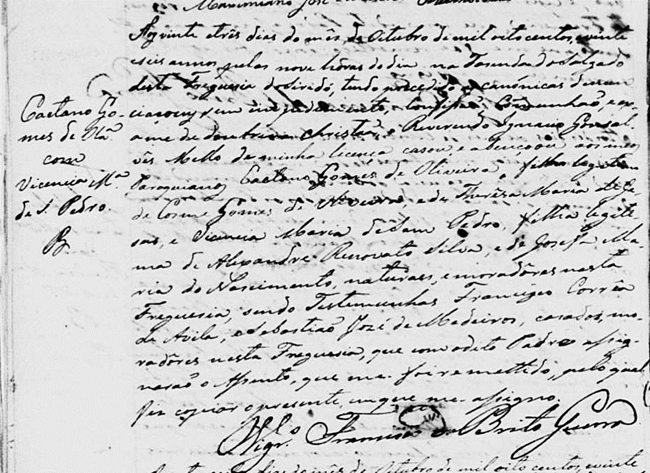 Maximiano José
Aos vinte e três dias do mês de Outubro de mil oito centos, e vinte
e seis annos, pelas nove horas do dia na Fasenda do Salgado
desta Freguesia do Siridó, tendo precedido as canónicas denun
ciaçoens, e um impedimento, confissão, Comunhão, e ex
ame de doutrina Christãa, o Reverendo Ignacio Gonsal
vês Mello de minha licença casou, e abençoou aos meus
Paroquianos Caetano Gomes de Oliveira, filho legitimo
de Cosme Gomes de e de Therêsa Maria de Je
sus, e Vicencia Maria de Sam Pedro, filha legiti
ma de Alexandre Renovato Silva, e de Josefa Ma
ria do Nascimento, naturaes, e moradôres nesta
Freguesia, sendo Testemunhas Francisco Corrêa
de Avila, e Sebastião José de Medeiros, casados, mo
radôres nesta Freguesia, que com o dito Padre assig
narão o Assento, que me foi remettido, pelo qual
fiz copiar o presente, em que me assigno.
Vigr.º Francisco de Brito Guerra
Caetano Go-
mes de Olª
com
Vicencia Mª
de S. Pedro.
dias do mês de Outubro de mil oito centos, e vinte